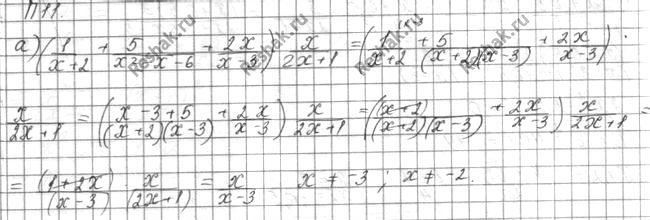 П11.
а) (1/(x+2) + 5/(x²-x-6) + 2x/(x-3)) x/(2x+1) = (1/(x+2) + 5/((x+2)(x-3)) + 2x/(x-3)) ·
x/(2x+1) = ((x-3+5)/((x+2)(x-3)) + 2x/(x-3)) x/(2x+1) = ((x+2)/((x+2)(x-3)) + 2x/(x-3)) x/(2x+1) =
= (1+2x)/(x-3) · x/(2x+1) = x/(x-3)   x ≠ -3 ; x ≠ -2.